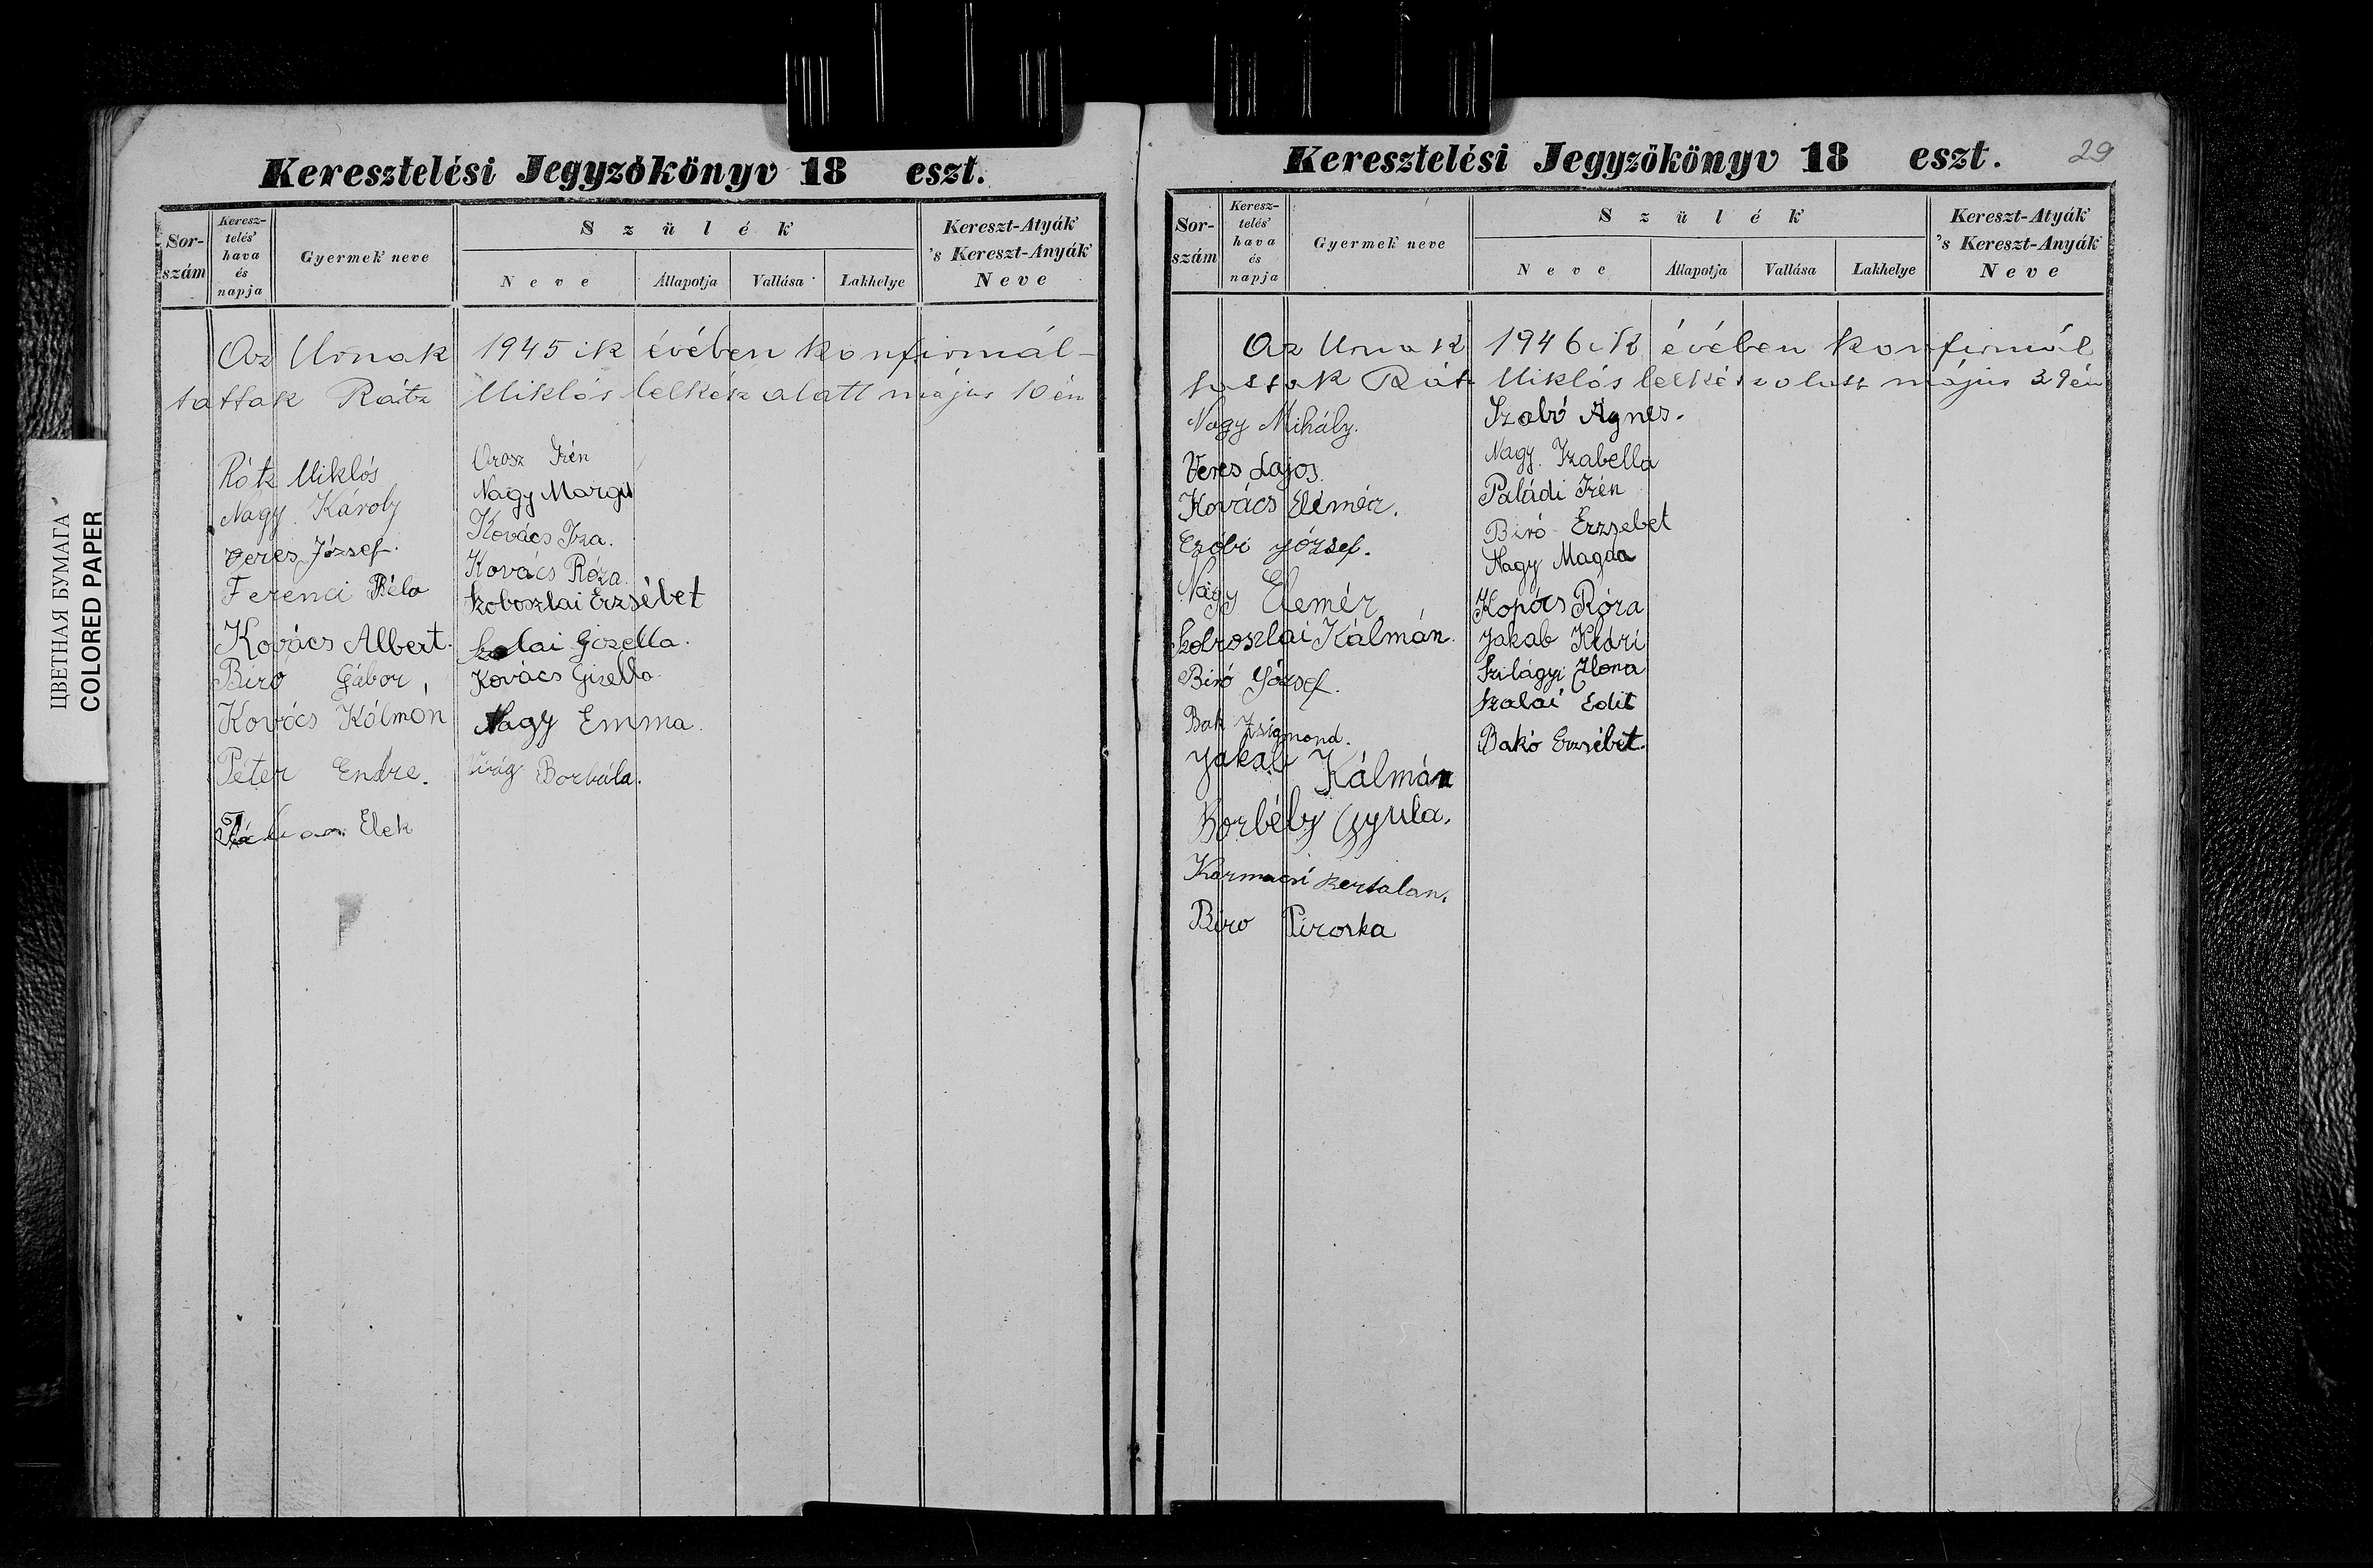 ЦВЕТНАЯ БУМАГА
COLORED PAPER
Keresztelési Jegyzőkönyv 18 eszt.
Sor-szám
Keresz-telés' hava és napja
Gyermek' neve
Szülék'
Neve
Állapotja
Vallása
Lakhelye
Kereszt-Atyák
's Kereszt-Anyák
Neve
Az Urnak 1945 ik évében konfirmál-
tattak Rátz Miklós lelkész alatt május 10 én
Rátz Miklós
Nagy Károly
Veres József.
Ferenci Béla
Kovács Albert.
Biró Gábor,
Kovács Kálmán
Péter Endre.
Elek
Orosz Irén
Nagy Margit
Kovács Iza.
Kovács Róza
Szoboszlai Erzsébet
Szalai Gizella.
Kovács Gizella.
Nagy Emma.
Virág Borbála.
Keresztelési Jegyzőkönyv 18 eszt.
29
Sor-szám
Keresz-telés' hava és napja
Gyermek' neve
Szülék'
Neve
Állapotja
Vallása
Lakhelye
Kereszt-Atyák
's Kereszt-Anyák
Neve
Az Urnak 1946 ik évében konfirmál
tattak Rát Miklós lelkész alatt május 29 én
Nagy Mihály.
Veres Lajos.
Kovács Elemér.
József.
Nagy Elemér
Kálmán.
Biró József.
Bak Zsigmond.
Jakab Kálmán
Borbély Gyula.
Bertalan.
Biro Piroska
Szabó Ágnes.
Nagy Izabella
Paládi Irén
Biró Erzsebet
Nagy Magda
Róza
Jakab Klári
Szilágyi Ilona
Szalai Edit
Bakó Erzsébet.